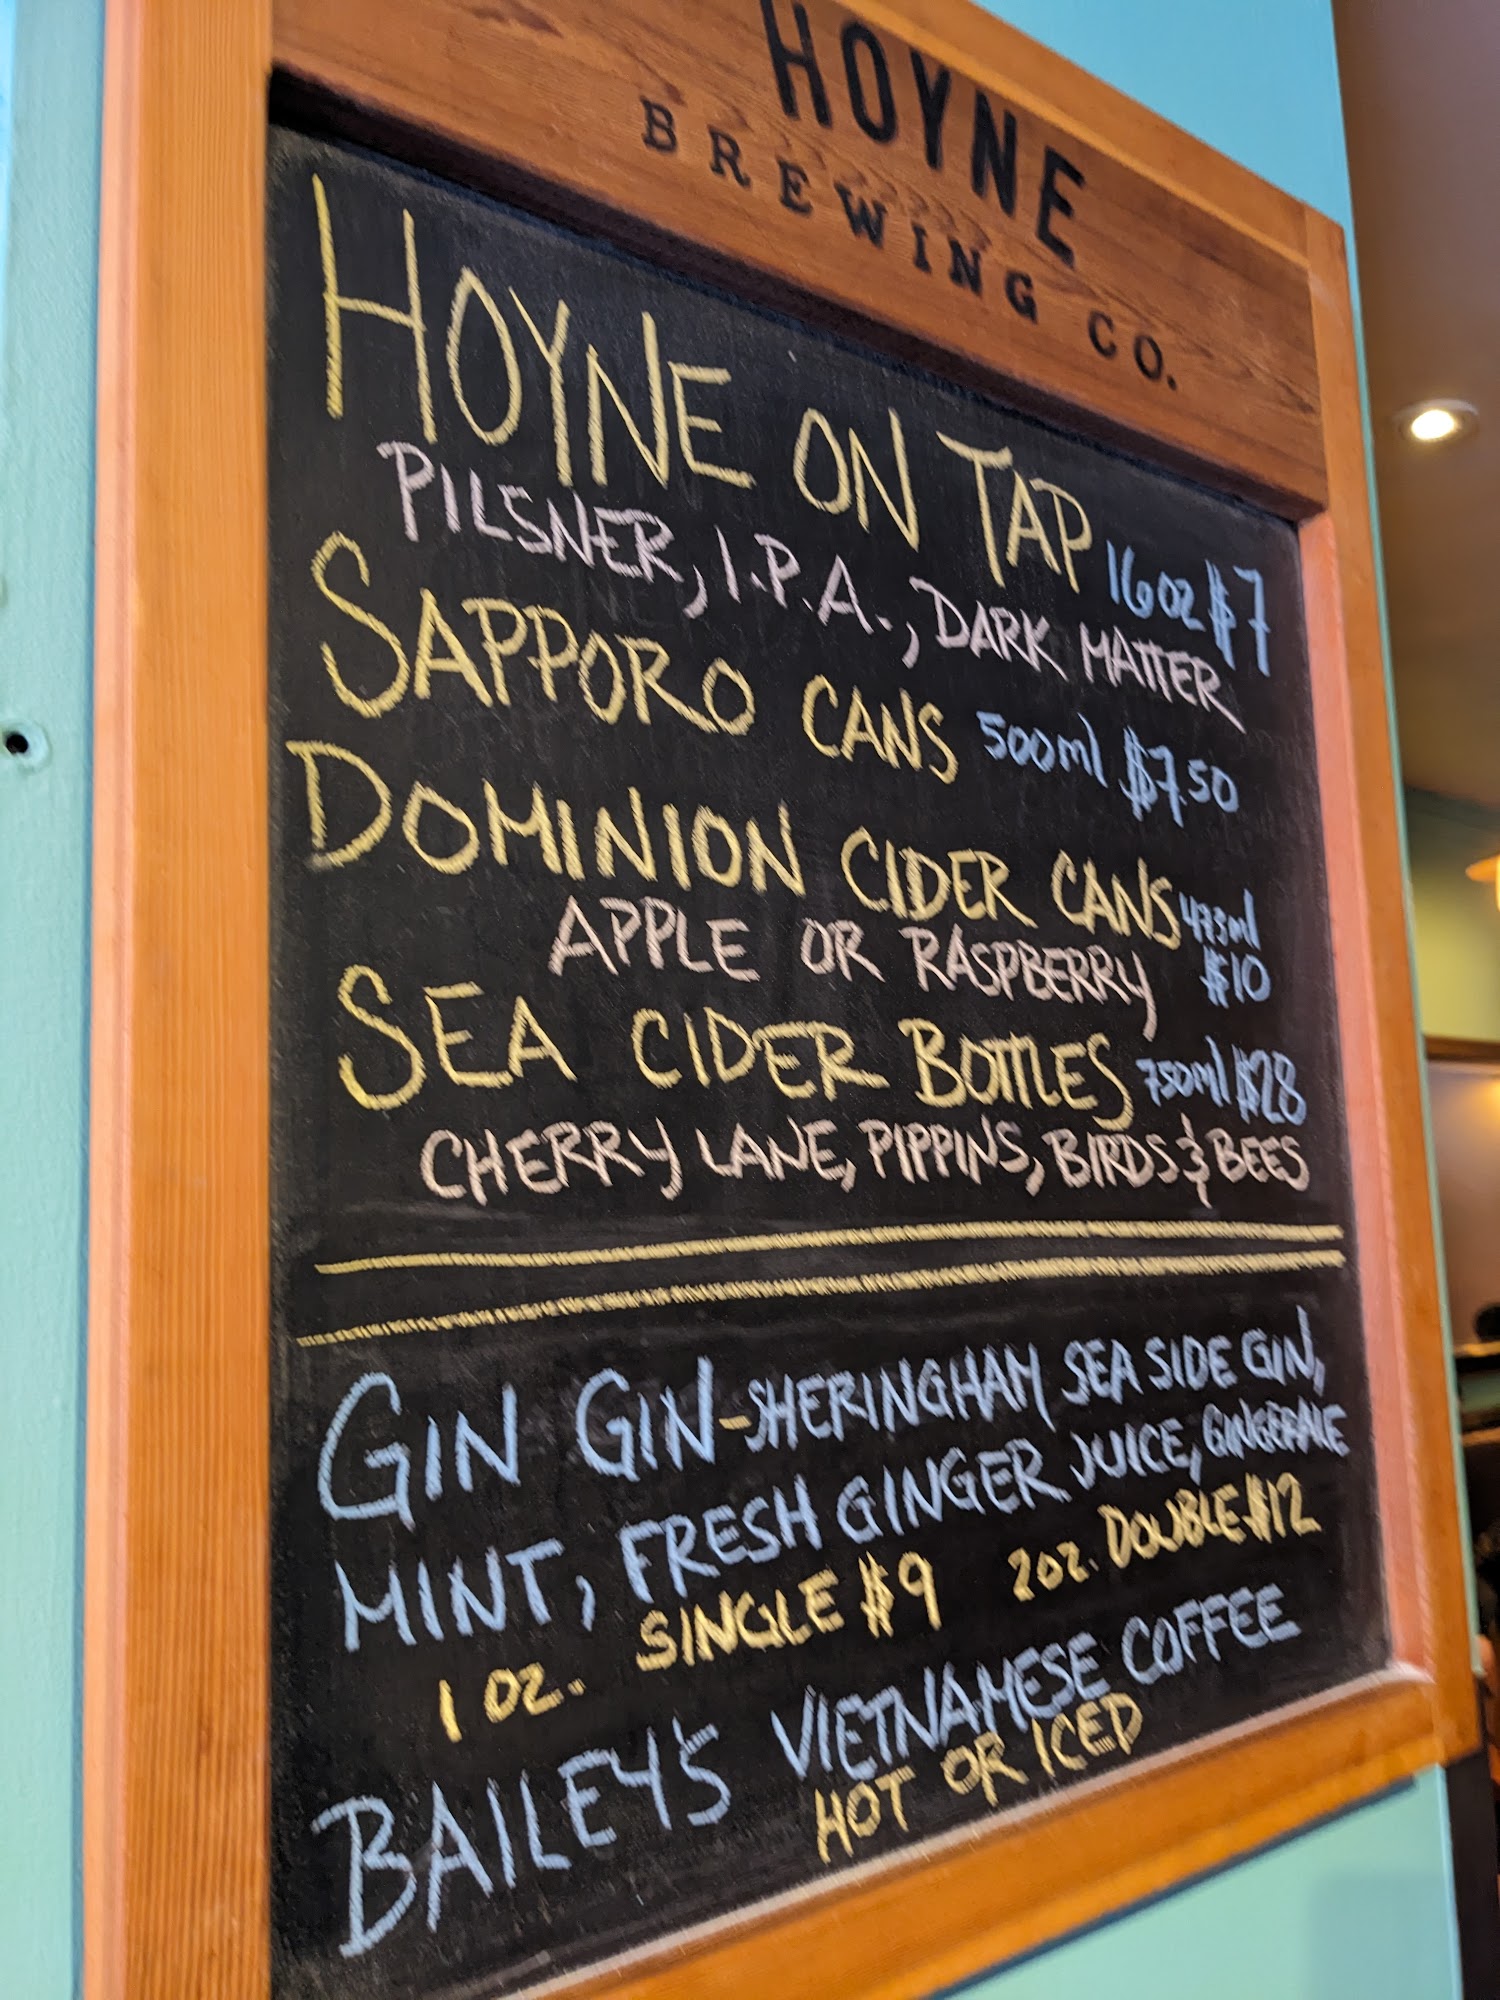 HOYNE
BREWING CO.
HOYNE ON TAP 16oz $7
PILSNER, I.P.A., DARK MATTER
SAPPORO CANS 500ml $7.50
DOMINION CIDER CANS 473ml
APPLE OR RASPBERRY $10
SEA CIDER BOTTLES 750ml $28
CHERRY LANE, PIPPINS, BIRDS & BEES
GIN GIN-SHERINGHAM SEA SIDE GIN,
MINT, FRESH GINGER JUICE, GINGERALE
1 OZ. SINGLE $9 2OZ. DOUBLE $12
BAILEY'S VIETNAMESE COFFEE
HOT OR ICED